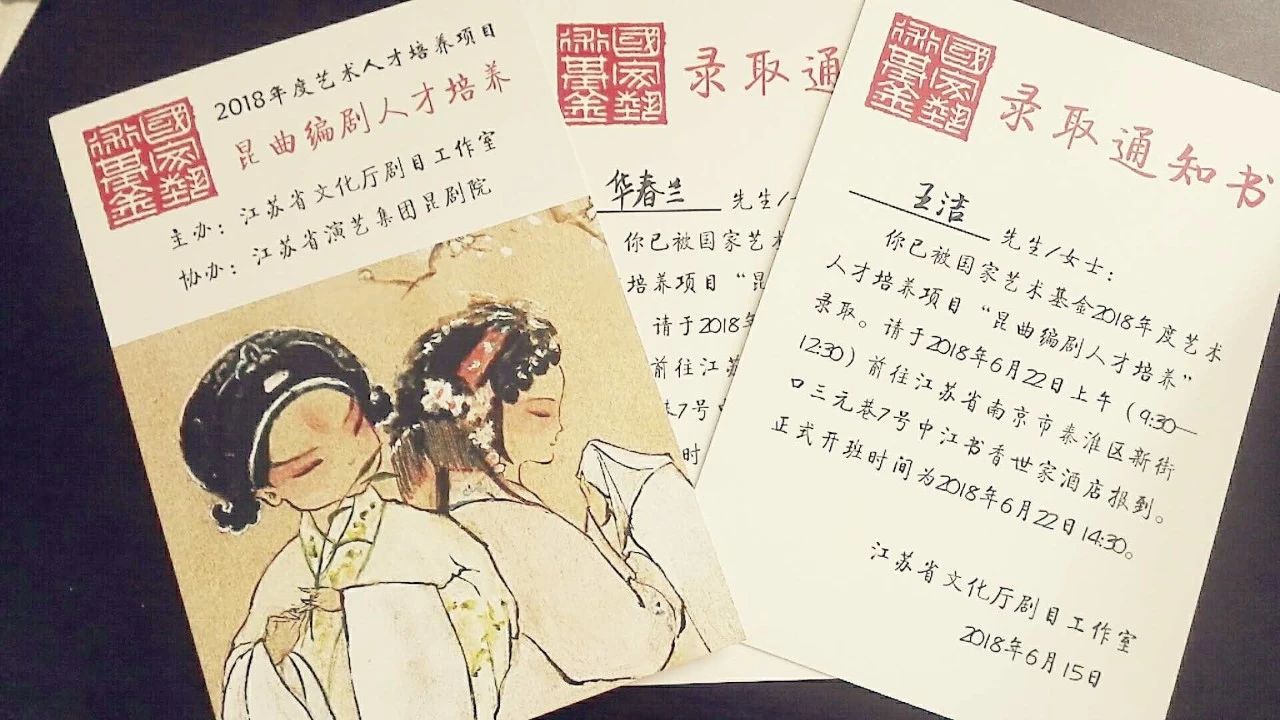 國家藝
術基金
2018年度艺术人才培养项目
昆曲编剧人才培养
主办：江苏省文化厅剧目工作室
协办：江苏省演艺集团昆剧院
國家藝
術基金
录取通
华春兰 先生/
你已被国家艺术
培养项目“昆
请于2018年
前往江苏
7号中
时
國家藝
術基金
录取通知书
王洁 先生/女士：
你已被国家艺术基金2018年度艺术
人才培养项目“昆曲编剧人才培养”
录取。请于2018年6月22日上午（9:30—
12:30）前往江苏省南京市秦淮区新街
口三元巷7号中江书香世家酒店报到。
正式开班时间为2018年6月22日14:30。
江苏省文化厅剧目工作室
2018年6月15日